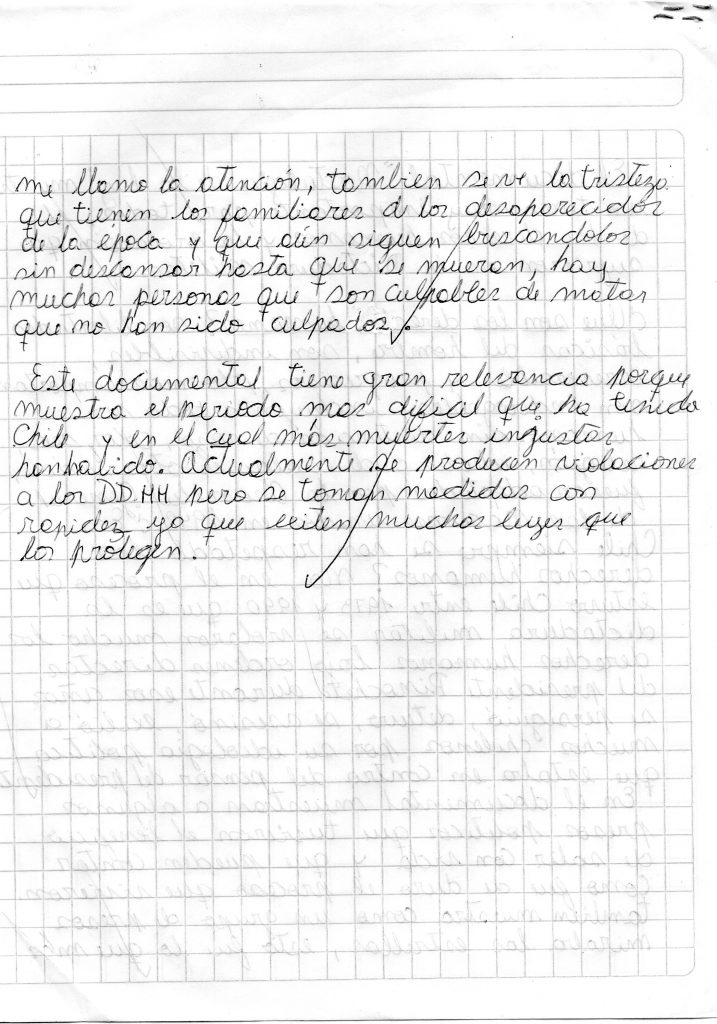 me llamo la atención, tambien se ve la tristeza
que tienen los familiares d los desaparecidos
de la época y que aún siguen buscandolos
sin descansar hasta que se mueran, hay
muchas personas que son culpables de matar
que no han sido culpados.
Este documental tiene gran relevancia porque
muestra el periodo mas dificil que ha tenido
Chile y en el cual más muertes injustas
han habido. Actualmente se producen violaciones
a los DD.HH pero se toman medidas con
rapidez ya que exiten muchas leyes que
los protegen.